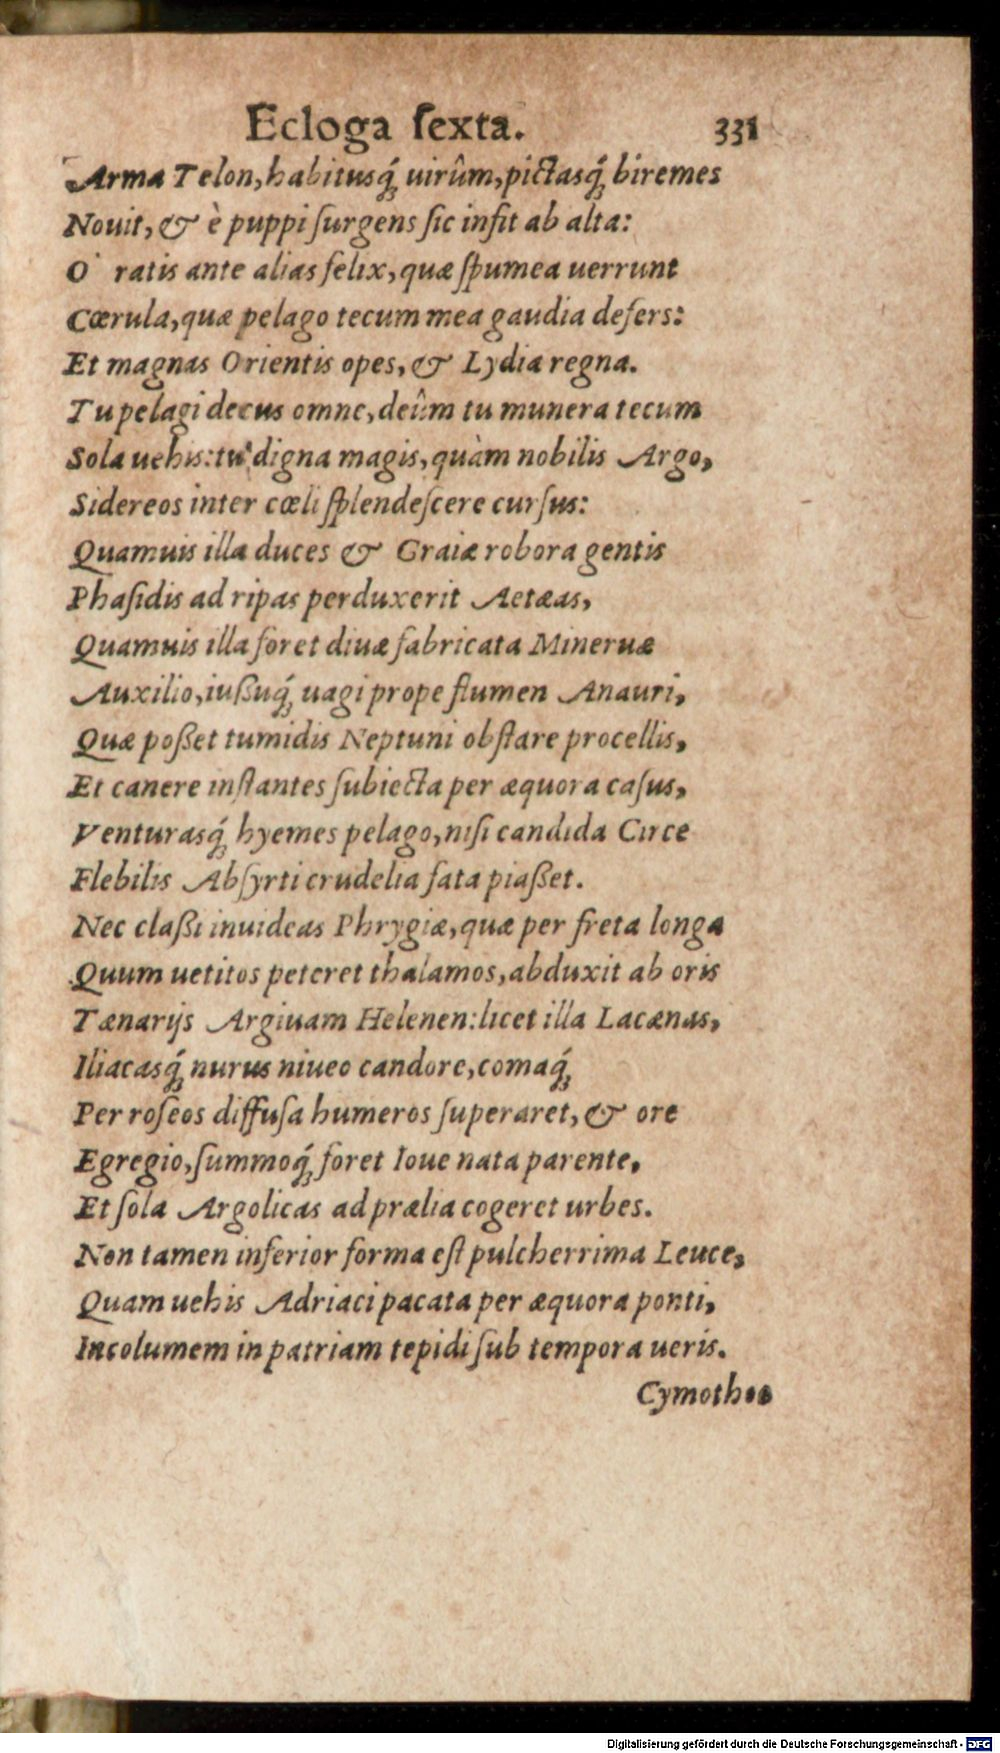 Ecloga ſexta. 331
Arma Telon, habitusq́; uirûm, pictasq́; biremes
Nouit, & è puppi ſurgens ſic infit ab alta:
O ratis ante alias felix, quæ ſpumea uerrunt
Cœrula, quæ pelago tecum mea gaudia defers:
Et magnas Orientis opes, & Lydia regna.
Tu pelagi decus omne, deûm tu munera tecum
Sola uehis: tu digna magis, quàm nobilis Argo,
Sidereos inter cœli ſplendeſcere curſus:
Quamuis illa duces & Graiæ robora gentis
Phaſidis ad ripas perduxerit Aetæas,
Quamuis illa foret diuæ fabricata Mineruæ
Auxilio, iußuq́; uagi prope flumen Anauri,
Quæ poßet tumidis Neptuni obſtare procellis,
Et canere inſtantes ſubiecta per æquora caſus,
Venturasq́; hyemes pelago, niſi candida Circe
Flebilis Abſyrti crudelia fata piaßet.
Nec claßi inuideas Phrygiæ, quæ per freta longa
Quum uetitos peteret thalamos, abduxit ab oris
Tænarijs Argiuam Helenen: licet illa Lacænas,
Iliacasq́; nurus niueo candore, comaq́;
Per roſeos diffuſa humeros ſuperaret, & ore
Egregio, ſummoq́; foret Ioue nata parente,
Et ſola Argolicas ad prælia cogeret urbes.
Non tamen inferior forma eſt pulcherrima Leuce,
Quam uehis Adriaci pacata per æquora ponti,
Incolumem in patriam tepidi ſub tempora ueris.
Cymothoe
Digitalisierung gefördert durch die Deutsche Forschungsgemeinschaft - DFG